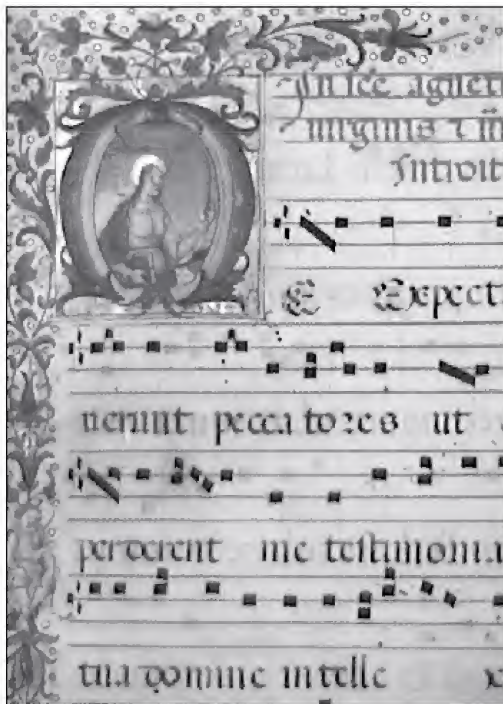 In scē agneti
uirginis
Introit
E Expect
uerunt pecca to res ut
perderent me testimonia
tua domine intelle x